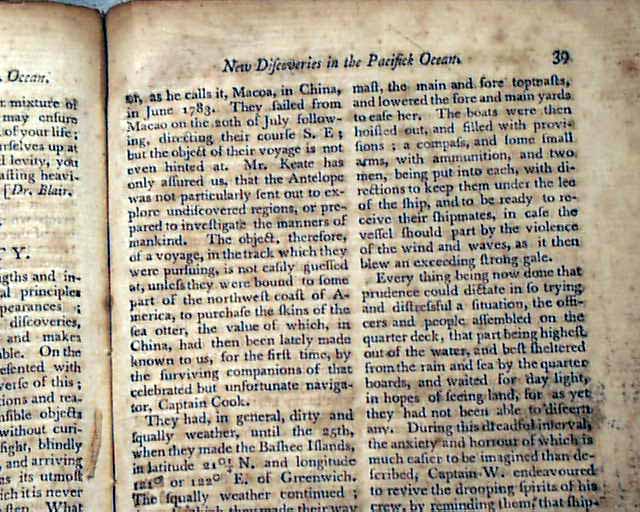 . Ocean.
t mixture of
may ensure
of your life;
rselves up at
d levity, you
asting heavi-
[Dr. Blair.
T Y.
gths and in-
al principles
pearances ;
discoveries,
and makes
ble. On the
esented with
verse of this;
ctions and rea-
nsible objects
without curi-
sight, blindly
and arriving
as its utmost
ich it is never
often. What
New Diſcoveries in the Pacifick Ocean.
39
or, as he calls it, Macoa, in China,
in June 1783. They ſailed from
Macao on the 20th of July follow-
ing, directing their courſe S. E;
but the object of their voyage is not
even hinted at. Mr. Keate has
only aſſured us, that the Antelope
was not particularly ſent out to ex-
plore undiſcovered regions, or pre-
pared to inveſtigate the manners of
mankind. The object, therefore,
of a voyage, in the track which they
were purſuing, is not eaſily gueſſed
at, unleſs they were bound to ſome
part of the northweſt coaſt of A-
merica, to purchaſe the ſkins of the
ſea otter, the value of which, in
China, had then been lately made
known to us, for the firſt time, by
the ſurviving companions of that
celebrated but unfortunate naviga-
tor, Captain Cook.
They had, in general, dirty and
ſqually weather, until the 25th,
when they made the Baſhee Iſlands,
in latitude 21°½ N. and longitude
121° or 122° E. of Greenwich.
The ſqually weather continued ;
which they made their way
maſt, the main and fore topmaſts,
and lowered the fore and main yards
to eaſe her. The boats were then
hoiſted out, and filled with provi-
ſions ; a compaſs, and ſome ſmall
arms, with ammunition, and two
men, being put into each, with di-
rections to keep them under the lee
of the ſhip, and to be ready to re-
ceive their ſhipmates, in caſe the
veſſel ſhould part by the violence
of the wind and waves, as it then
blew an exceeding ſtrong gale.
Every thing being now done that
prudence could dictate in ſo trying,
and diſtreſsful a ſituation, the offi-
cers and people aſſembled on the
quarter deck, that part being higheſt
out of the water, and beſt ſheltered
from the rain and ſea by the quarter
boards, and waited for day light,
in hopes of ſeeing land, for as yet
they had not been able to diſcern
any. During this dreadful interval,
the anxiety and horrour of which is
much eaſier to be imagined than de-
ſcribed, Captain W. endeavoured
to revive the drooping ſpirits of his
crew, by reminding them, that ſhip-